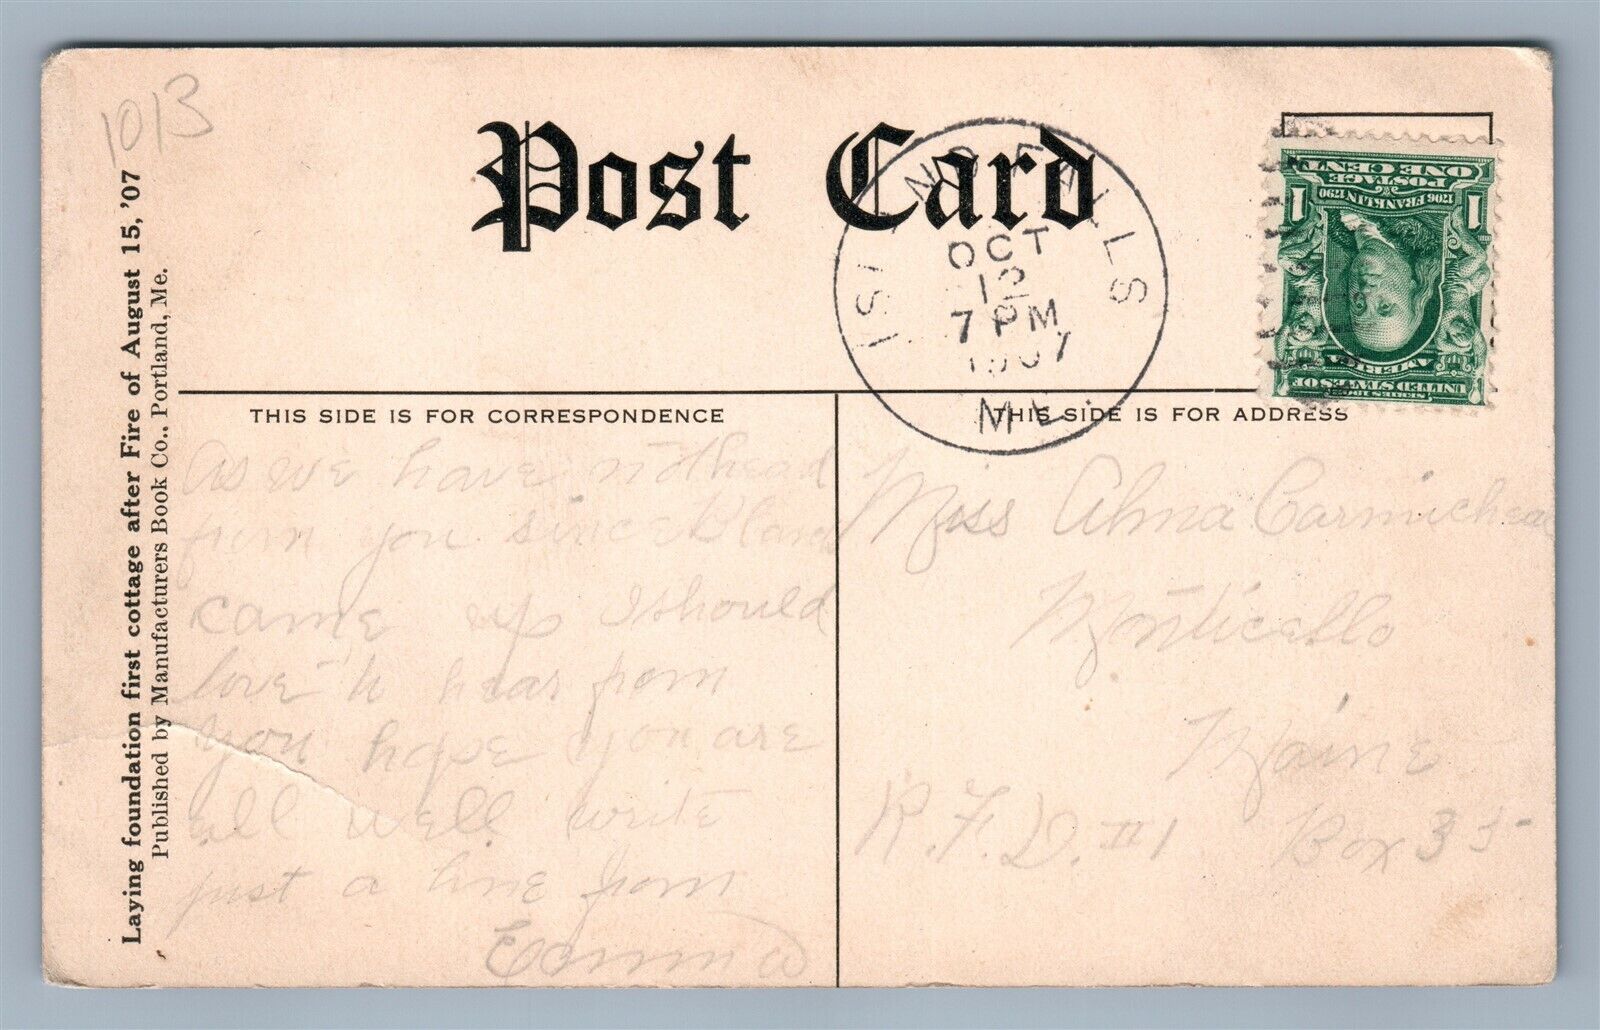 1013
Post Card
ISLAND FALLS
OCT
12
7 PM
1907
ME.
1 POSTAGE ONE CENT 1
1706 FRANKLIN 1790
SERIES 1902
UNITED STATES OF
AMERICA
Laying foundation first cottage after Fire of August 15, '07
Published by Manufacturers Book Co., Portland, Me.
THIS SIDE IS FOR CORRESPONDENCE
as we have not head
from you since
came up I should
love to hear from
you hope you are
all well write
just a line from
THIS SIDE IS FOR ADDRESS
Miss Alma Carmicheal
Monticello
Maine
R.F.D. #1 Box 35